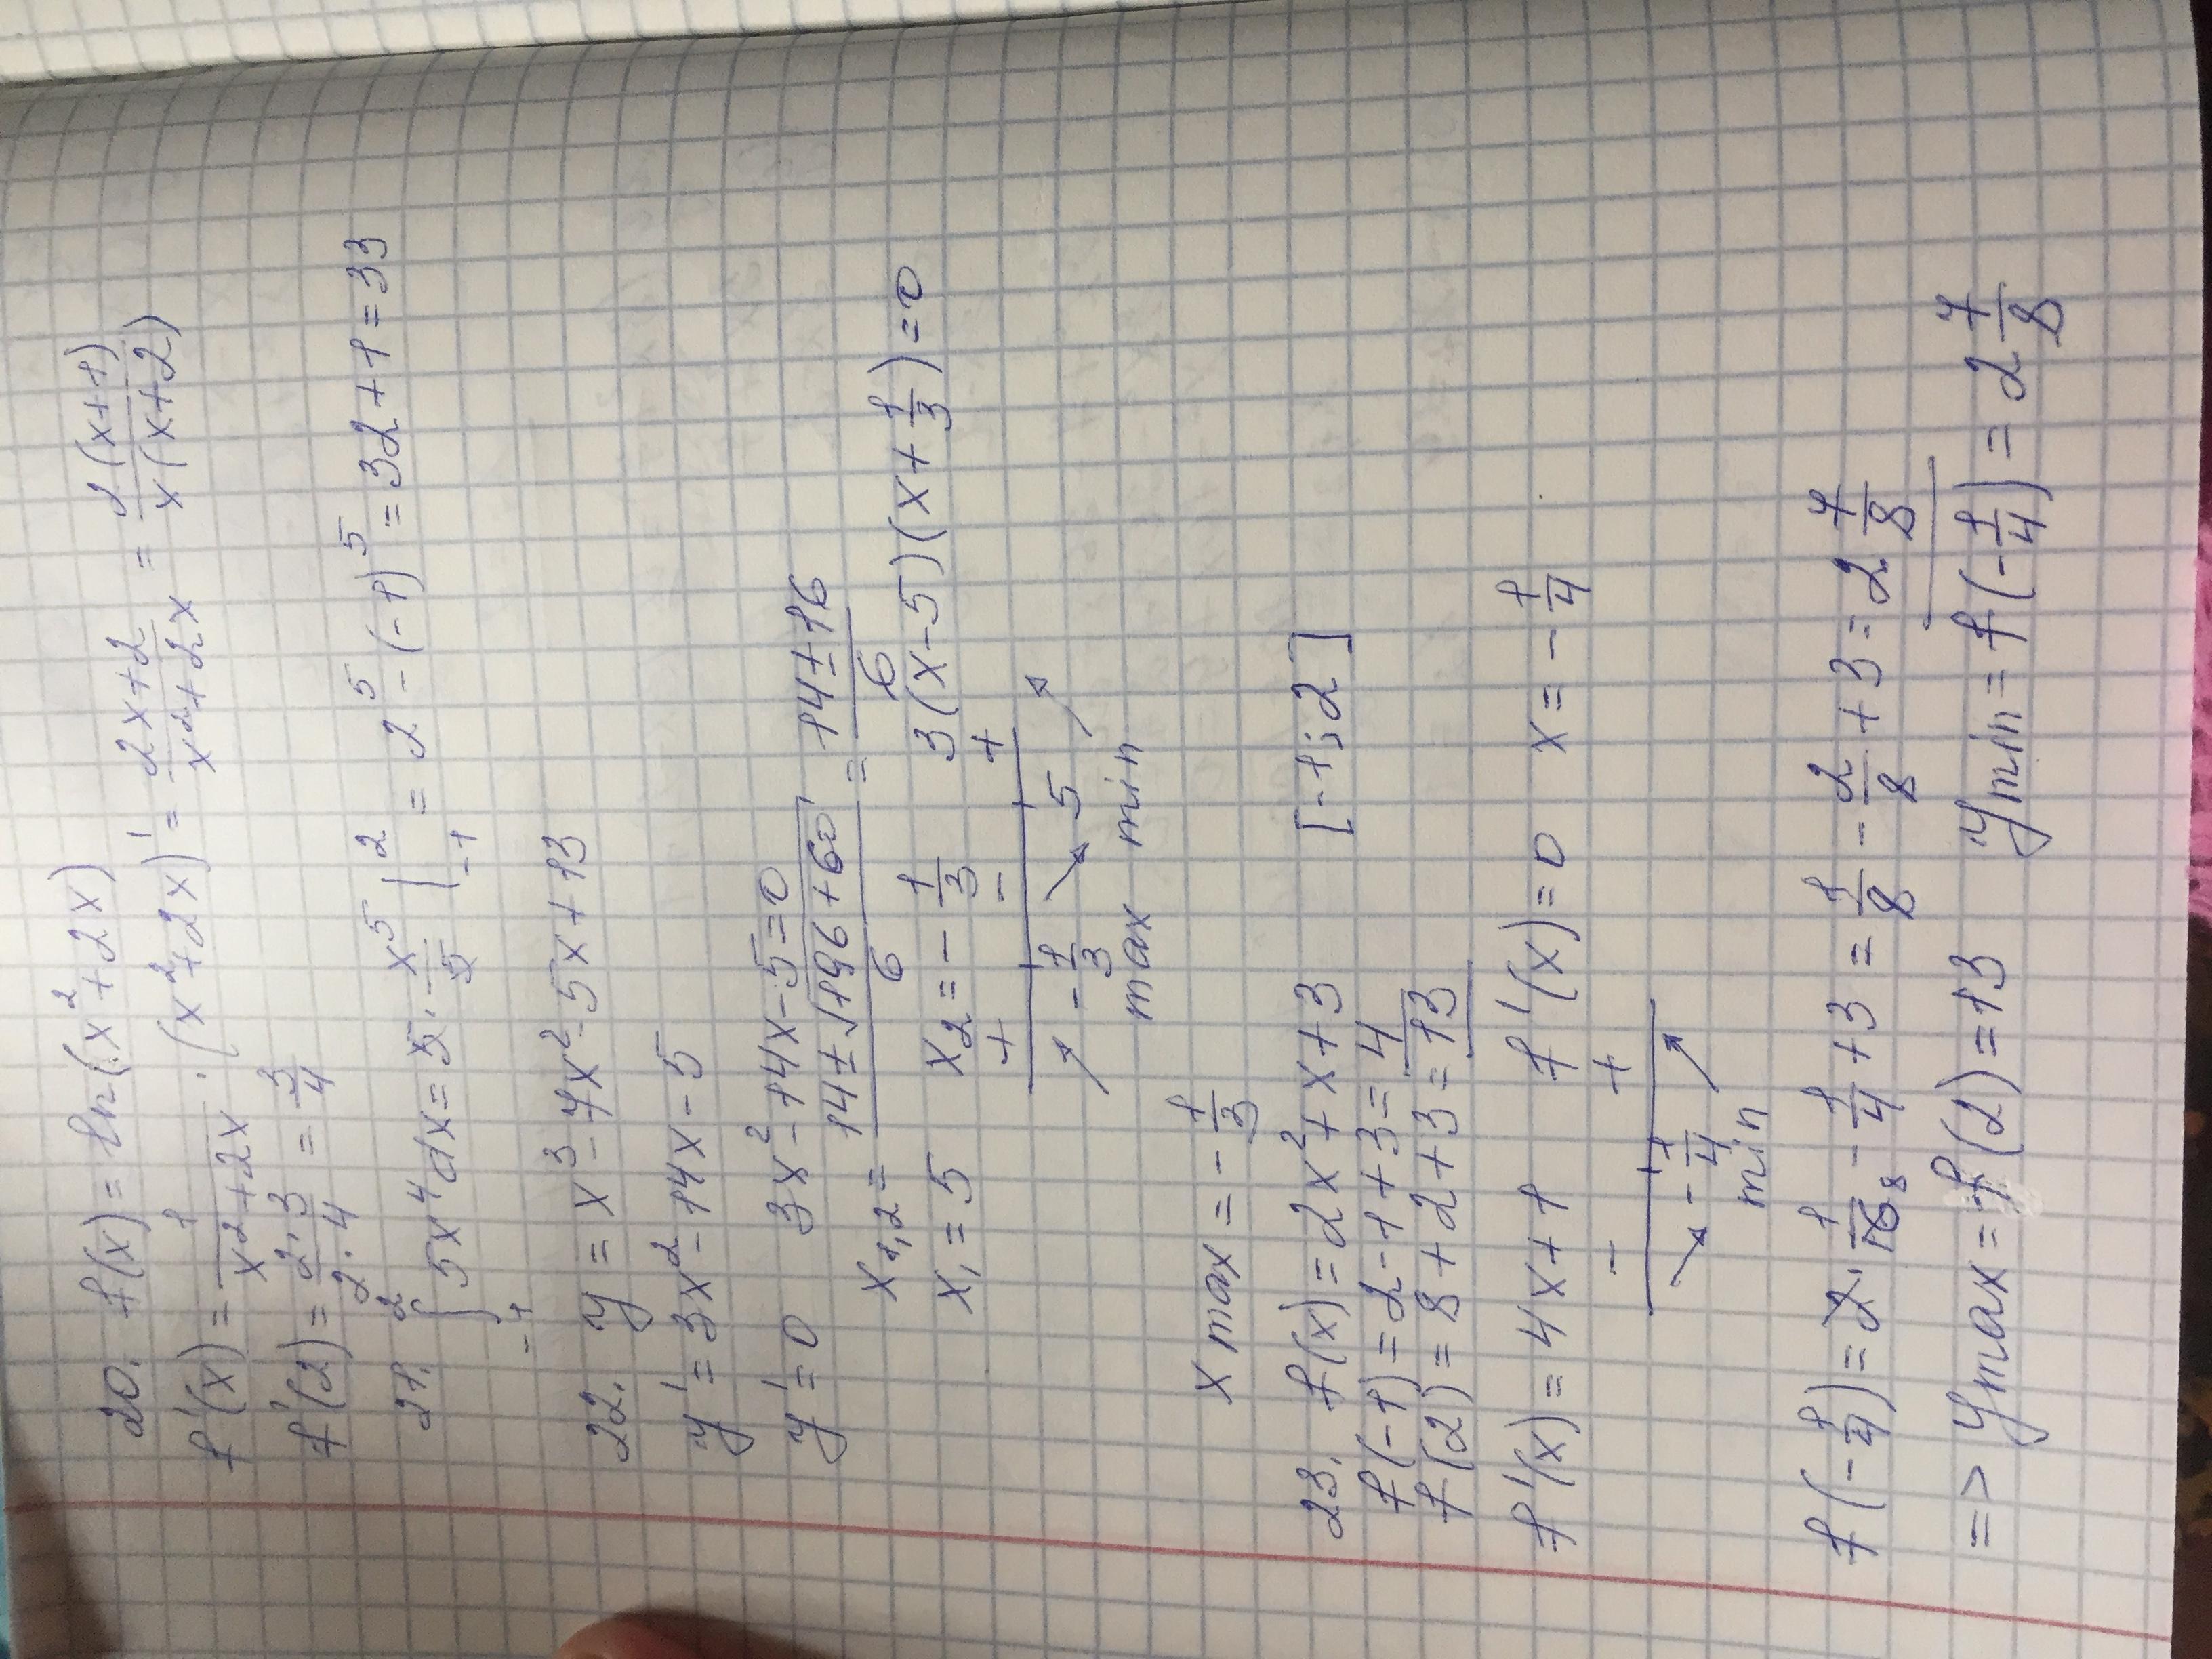 20. f(x) = ln(x²+2x)
f'(x) = 1/(x²+2x) · (x²+2x)' = (2x+2)/(x²+2x) = 2(x+1)/(x(x+2))
f'(2) = (2·3)/(2·4) = 3/4
21. ∫₋₁² 5x⁴dx = 5 · x⁵/5 |₋₁² = 2⁵ - (-1)⁵ = 32+1 = 33
22. y = x³ - 7x² - 5x + 13
y' = 3x² - 14x - 5
y' = 0 3x² - 14x - 5 = 0
x₁,₂ = (14 ± √(196+60))/6 = (14 ± 16)/6
x₁ = 5 x₂ = -1/3 3(x-5)(x+1/3) = 0
+ - +
↗ -1/3 ↘ 5 ↗
max min
x max = -1/3
23. f(x) = 2x² + x + 3 [-1; 2]
f(-1) = 2 - 1 + 3 = 4
f(2) = 8 + 2 + 3 = 13
f'(x) = 4x + 1 f'(x) = 0 x = -1/4
- +
↘ -1/4 ↗
min
f(-1/4) = 2 · 1/16 8 - 1/4 + 3 = 1/8 - 2/8 + 3 = 2 7/8
=> y max = f(2) = 13 y min = f(-1/4) = 2 7/8